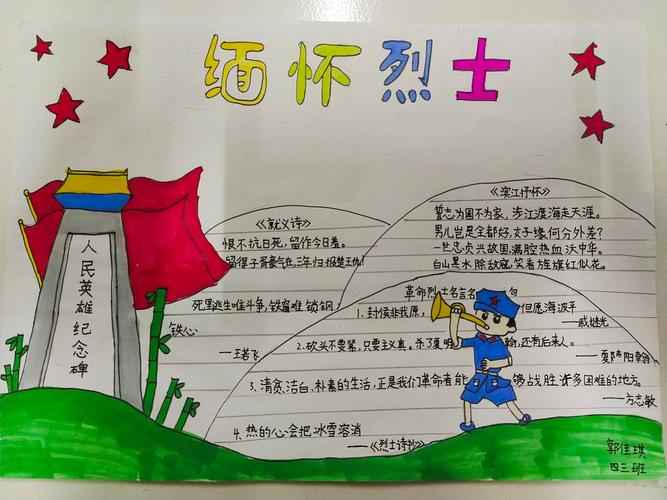 缅怀烈士
人民英雄纪念碑
《就义诗》
恨不抗日死,留作今日羞。
留得子胥豪气在,三年归报楚王仇!
死里逃生唯斗争,铁窗难锁钢
铁心
——王若飞
《滨江抒怀》
誓志为国不为家,涉江渡海走天涯。
男儿岂是全都好,女子缘何分外差?
一世忠贞兴故国,满腔热血沃中华。
白山黑水除敌寇,笑看旌旗红似花。
革命烈士名言名句
1、封侯非我原,但愿海波平
——戚继光
2、砍头不要紧,只要主义真。杀了夏明翰,还有后来人。
——夏明翰
3、清贫,洁白,朴素的生活,正是我们革命者能够战胜许多困难的地方。
——方志敏
4、热的心会把冰雪溶消
——《烈士诗抄》
郭佳琪
四三班